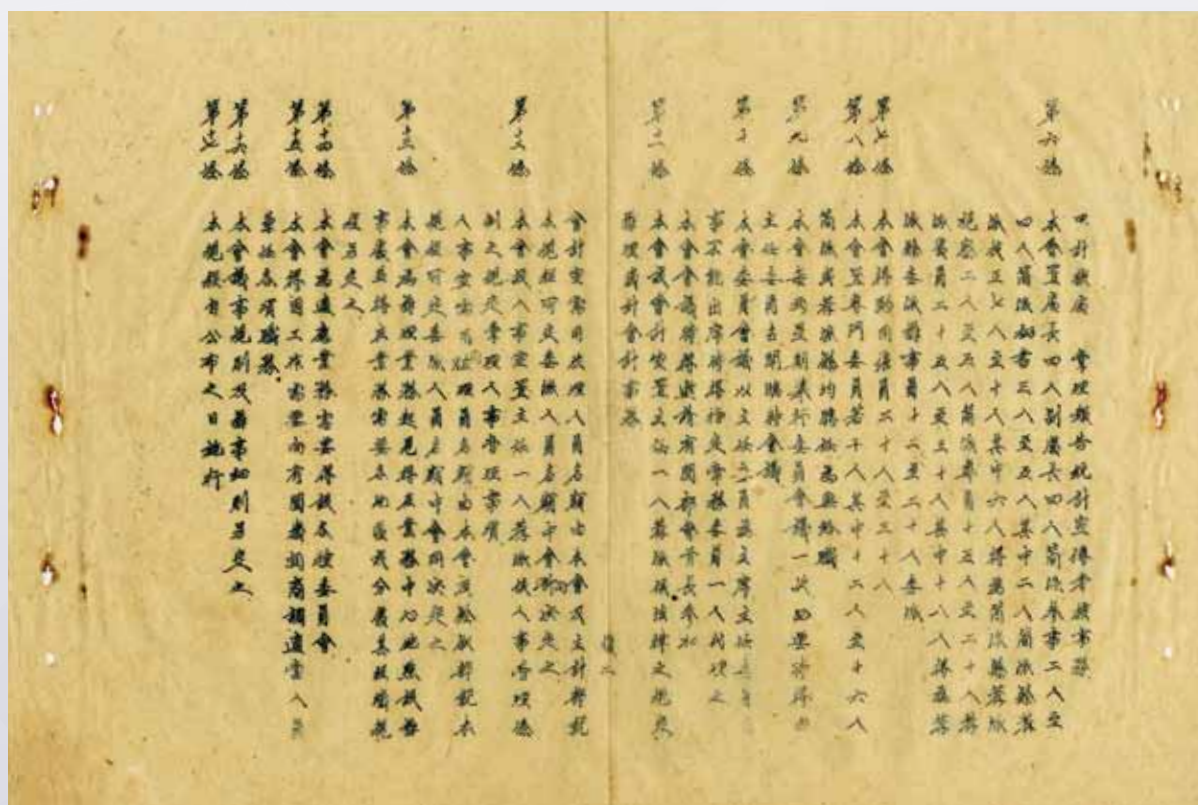 四計核處 掌理報告統計宣傳考核事務
第六條 本會置處長四人副處長四人簡派參事二人至
四人簡派秘書三人至五人其中二人簡派餘薦
派技正七人至十人其中六人得為簡派餘薦派
視察二人至五人簡派專員十五人至二十人薦
派處員二十五人至三十人其中十八人得薦
派餘委派辦事員十六至二十人委派
第七條 本會得酌用僱員二十人至三十人
第八條 本會置專門委員若干人其中十二人至十六人
簡派或薦派餘均聘任為無給職
第九條 本會每兩星期舉行委員會議一次必要時得由
主任委員召開臨時會議
第十條 本會委員會議以主任委員為主席主任委員因
事不能出席時得指定常務委員一人代理之
本會會議時得邀請有關部會首長參加
第十一條 本會設會計室置主任一人薦派依法律之規定
辦理歲計會計事務
會計室需用佐理人員名額由本會及主計部就
本規程所定委派人員名額中會同決定之
第十二條 本會設人事室置主任一人薦派依人事管理條
例之規定掌理人事管理事項
人事室需用佐理人員名額由本會及銓敘部就本
規程所定委派人員名額中會同決定之
第十三條 本會為辦理業務起見得在業務中心地點設辦
事處並得在業務需要各地區設分處其組織規
程另定之
第十四條 本會為適應業務需要得設各種委員會
第十五條 本會得因工作需要向有關機關商調適當人員
兼任各項職務
第十六條 本會議事規則及辦事細則另定之
第十七條 本規程自公布之日施行